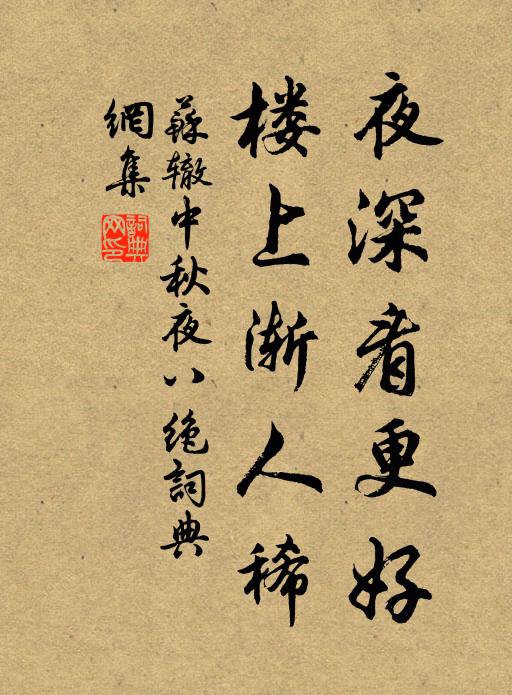 夜深看更好
楼上渐人稀
蘇辙中秋夜八绝詞典
網集
詞典网印